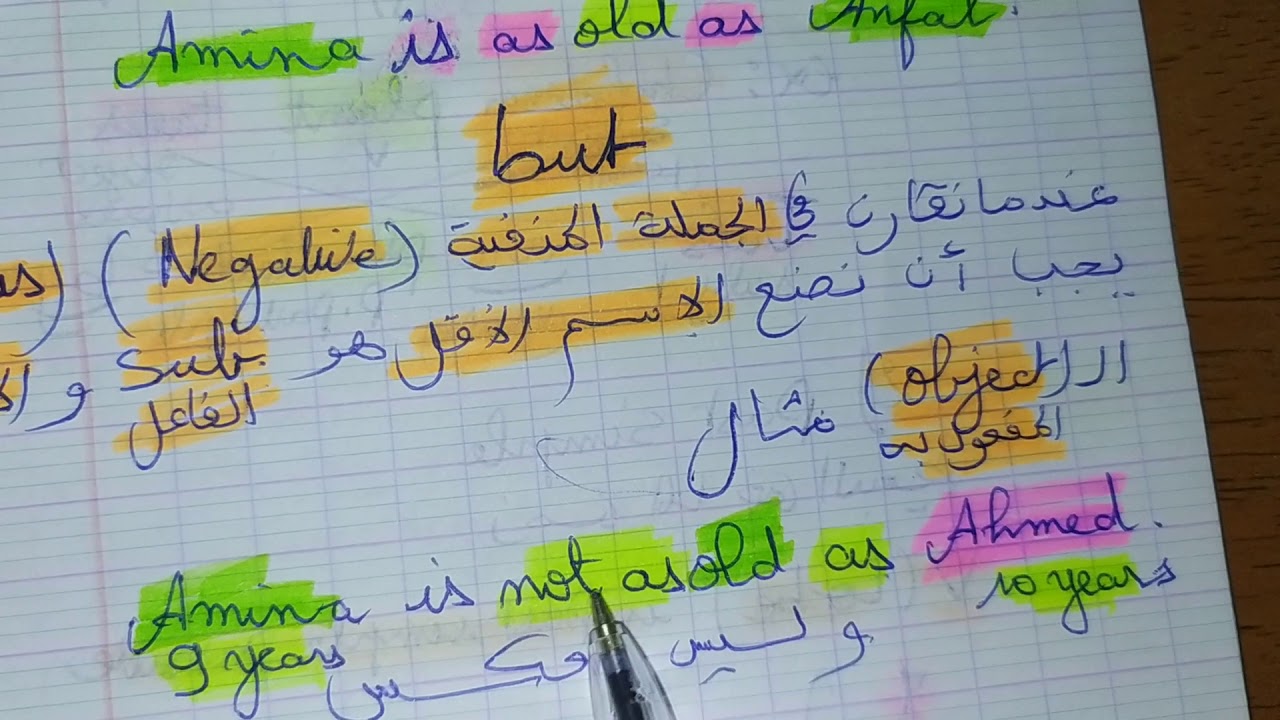 Amina is as old as Anfal.
but
عندما نقارن في الجملة المنفية (Negative) (as
يجب أن نضع الاسم الأقل هو Sub. و الا
الفاعل
الـ (object) مثال
المفعول به
Amina is not as old as Ahmed.
9 years 10 years
و ليس العكس